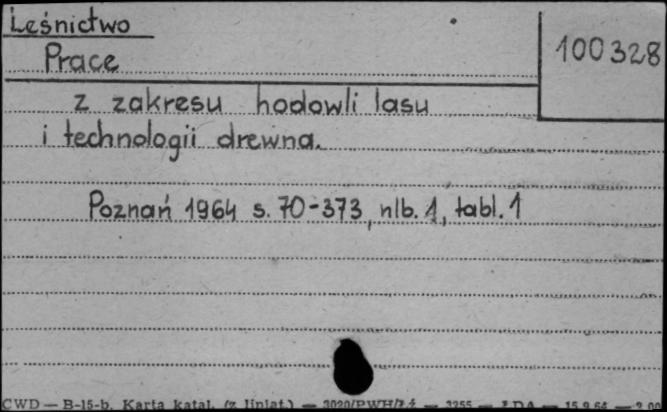 Leśnictwo
100328
Prace
z zakresu hodowli lasu
i technologii drewna.
Poznań 1964 s. 70-373, nlb. 1, tabl. 1
CWD — B-15-b. Karta katal. (z liniat.) — 3020/PWH/Łź — 3255 — ŁDA — 15.9.64 —